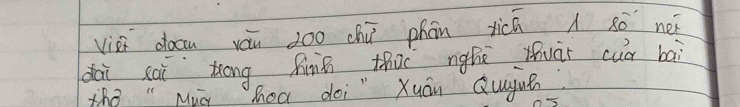 Viết đoạn văn 200 chữ phân tích 1 số nét
đặc sắc trong hình thức nghệ thuật của bài
thơ "Mùa hoa doi" Xuân Quỳnh.